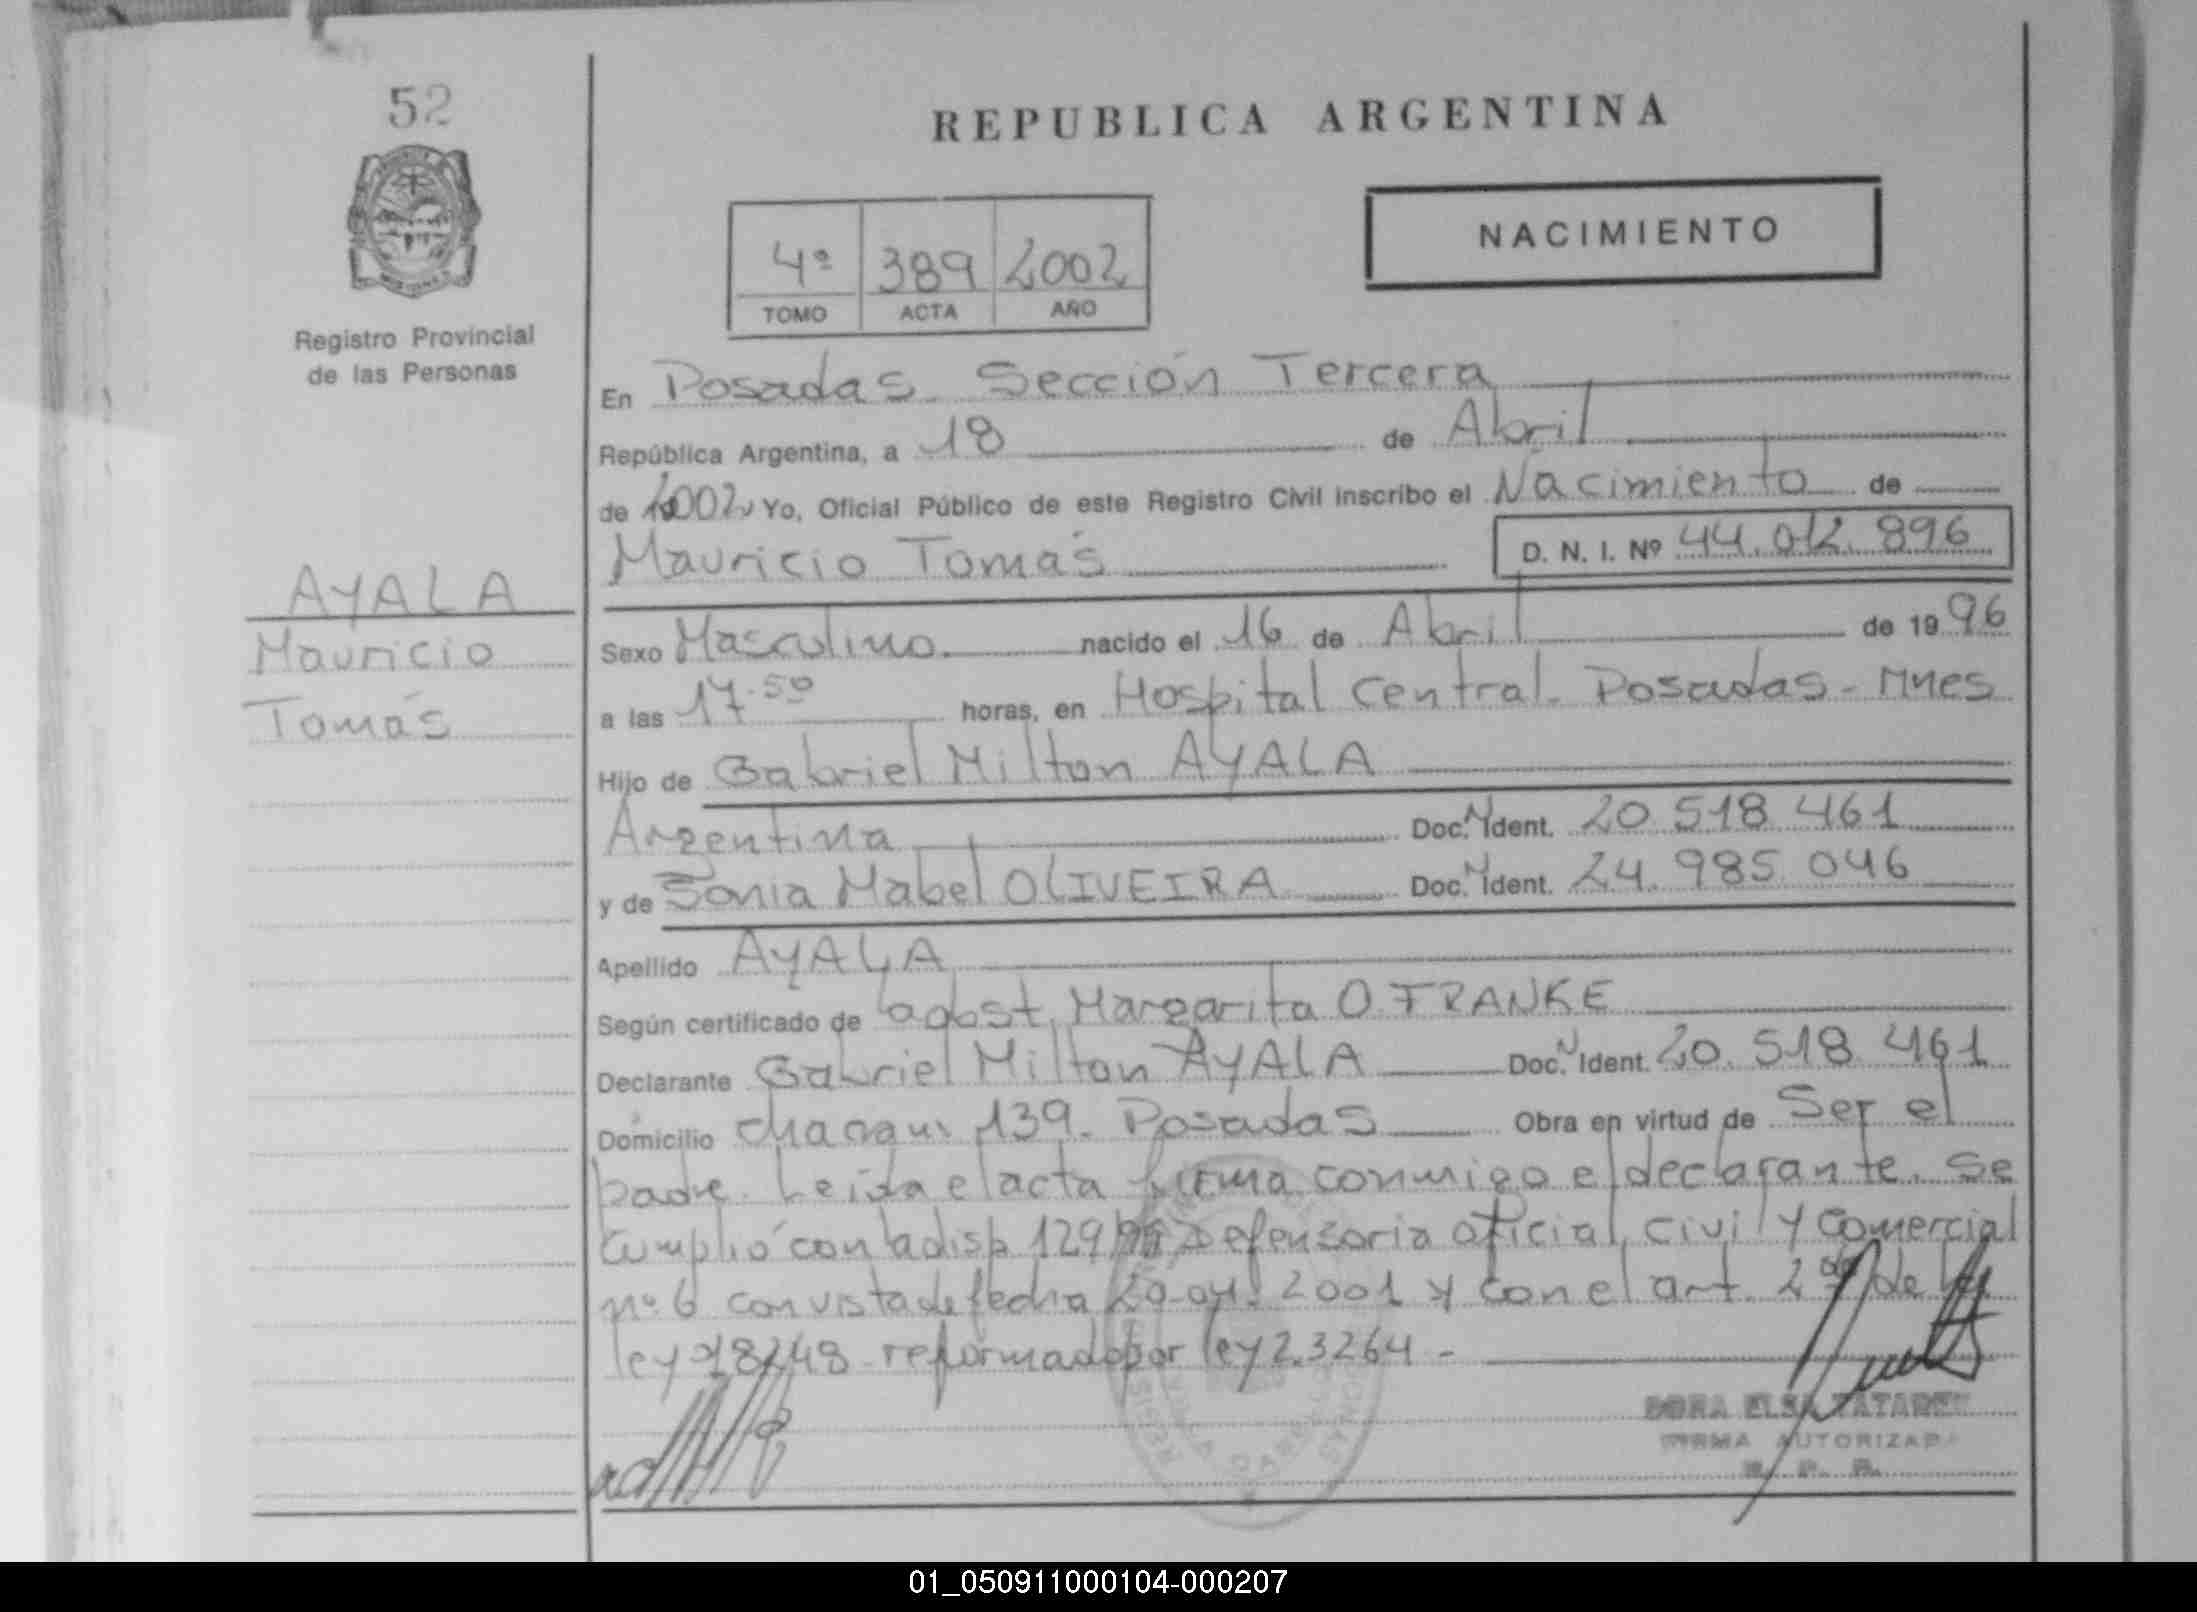 52
REPUBLICA ARGENTINA
NACIMIENTO
4º 389 2002
TOMO ACTA AÑO
Registro Provincial
de las Personas
En Posadas Sección Tercera
República Argentina, a 18 de Abril
de 2002 Yo, Oficial Público de este Registro Civil inscribo el Nacimiento de
Mauricio Tomás D. N. I. Nº 44.012.896
AYALA
Mauricio
Tomás
Sexo Masculino. nacido el 16 de Abril de 1996
a las 17.50 horas, en Hospital Central. Posadas - Mnes
Hijo de Gabriel Milton AYALA
Argentina Doc. N Ident. 20.518.461
y de Sonia Mabel OLIVEIRA Doc. N Ident. 24.985.046
Apellido AYALA
Según certificado de Margarita O. FRANKE
Declarante Gabriel Milton AYALA Doc. N Ident. 20.518.461
Domicilio 139. Posadas Obra en virtud de Ser el
padre. Leida el acta firma conmigo el declarante. Se
cumplió con la disp. 129 Defensoria oficial civil y Comercial
nº 6 con vista de fecha 2001 y con el art. 2º de la
ley 18248 reformado por ley 2.3264 -
DORA ELSA
FIRMA AUTORIZADA
R. P. P.
01_050911000104-000207